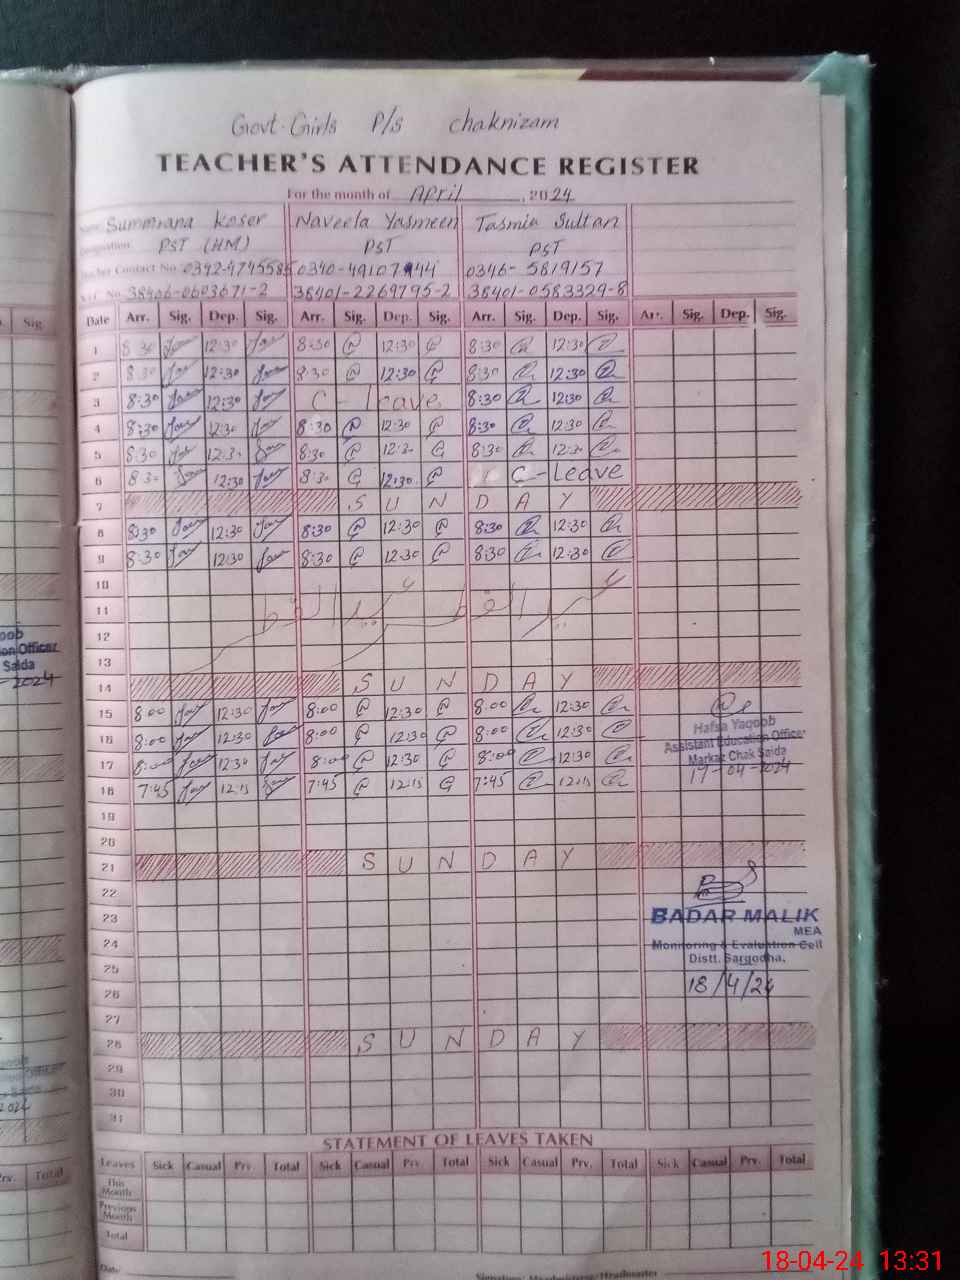 Govt. Girls P/s Chaknizam
TEACHER'S ATTENDANCE REGISTER
For the month of April, 2024
Name Summrana Koser Naveela Yasmeen Tasmia Sultan
Designation PST (HM) PST PST
Teacher Contact No. 0342-4745585 0340-4910744 0346-5819157
N.I.C. No. 38406-0603671-2 38401-2269795-2 38401-0583329-8
Date Arr. Sig. Dep. Sig. Arr. Sig. Dep. Sig. Arr. Sig. Dep. Sig. Arr. Sig. Dep. Sig.
1 8:30 12:30 8:30 12:30 8:30 12:30
2 8:30 12:30 8:30 12:30 8:30 12:30
3 8:30 12:30 C-leave 8:30 12:30
4 8:30 12:30 8:30 12:30 8:30 12:30
5 8:30 12:30 8:30 12:30 8:30 12:30
6 8:30 12:30 8:30 12:30 C-Leave
7 SUNDAY
8 8:30 12:30 8:30 12:30 8:30 12:30
9 8:30 12:30 8:30 12:30 8:30 12:30
10
11 عید الفطر عید الفطر
12
13
14 SUNDAY
15 8:00 12:30 8:00 12:30 8:00 12:30
16 8:00 12:30 8:00 12:30 8:00 12:30
17 8:00 12:30 8:00 12:30 8:00 12:30
18 7:45 12:15 7:45 12:15 7:45 12:15
Hafsa Yaqoob
Assistant Education Officer
Markaz Chak Saida
17-04-2024
19
20
21 SUNDAY
22
23
24
25
26
27
28 SUNDAY
29
30
31
BADAR MALIK
MEA
Monitoring & Evaluation Cell
Distt. Sargodha.
18/4/24
STATEMENT OF LEAVES TAKEN
Leaves Sick Casual Prv. Total Sick Casual Prv. Total Sick Casual Prv. Total Sick Casual Prv. Total
This Month
Previous Month
Total
Date
Sig.
Officer
Saida
2024
Prv. Total
18-04-24 13:31